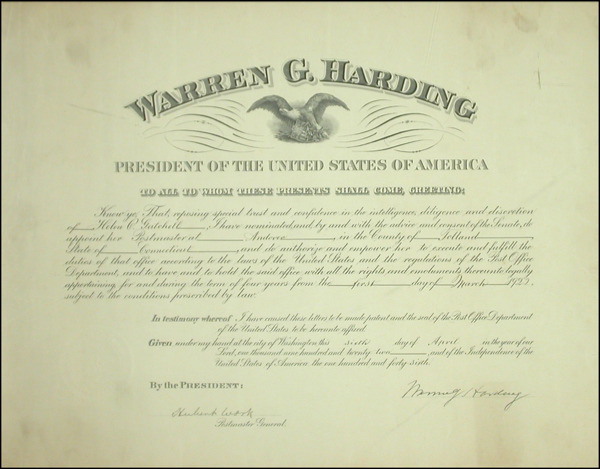 WARREN G. HARDING
PRESIDENT OF THE UNITED STATES OF AMERICA
TO ALL TO WHOM THESE PRESENTS SHALL COME, GREETING:
Know ye, That, reposing special trust and confidence in the intelligence, diligence and discretion
of Helen C. Gatchell, I have nominated, and, by and with the advice and consent of the Senate, do
appoint her Postmaster at Andover in the County of Tolland
State of Connecticut and do authorize and empower her to execute and fulfill the
duties of that office according to the laws of the United States and the regulations of the Post Office
Department, and to have and to hold the said office with all the rights and emoluments thereunto legally
appertaining for and during the term of four years from the first day of March 1922,
subject to the conditions prescribed by law.
In testimony whereof I have caused these letters to be made patent and the seal of the Post Office Department
of the United States to be hereunto affixed.
Given under my hand at the city of Washington this sixth day of April in the year of our
Lord, one thousand nine hundred and twenty two, and of the Independence of the
United States of America the one hundred and forty sixth.
By the PRESIDENT:
Warren G Harding
Hubert Work
Postmaster General.